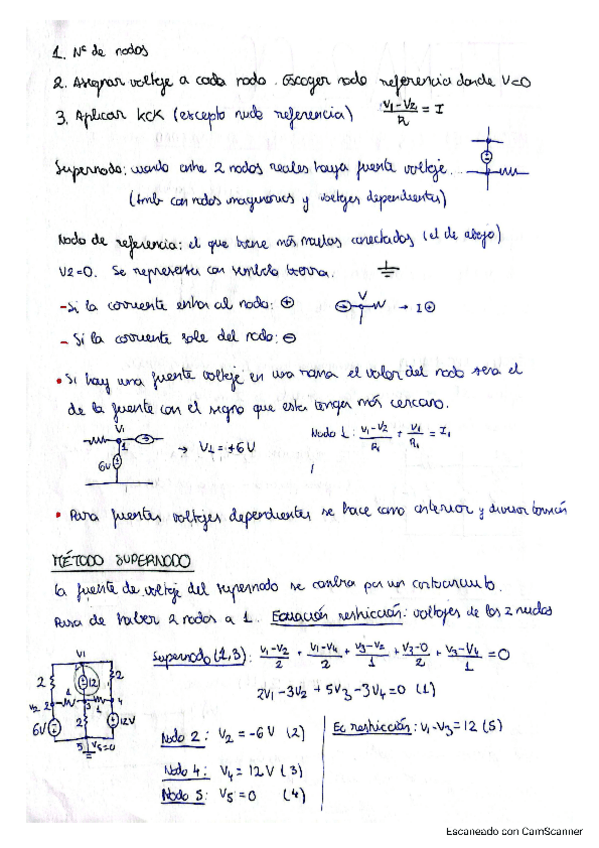 1. Nº de nodos
2. Asignar voltaje a cada nodo. Escoger nodo referencia donde V=0
3. Aplicar KCK (excepto nudo referencia) V1-V2/R = I
Supernodo: cuando entre 2 nodos reales haya fuente voltaje.
(tmb con nodos imaginarios y voltajes dependientes)
Nodo de referencia: el que tiene más mallas conectados (el de abajo)
V2=0. Se representa con símbolo tierra.
- Si la corriente entra al nodo: ⊕
V
→ I⊕
- Si la corriente sale del nodo: ⊖
• Si hay una fuente voltaje en una rama el valor del nodo sera el
de la fuente con el signo que este tenga más cercano.
V1
1
6V
→ V1 = +6V
Nodo 1: V1-V2/R1 + V1/R1 = I1
• Para fuentes voltajes dependientes se hace como anterior y
MÉTODO SUPERNODO
La fuente de voltaje del supernodo se cambia por un cortocircuito.
Pasa de haber 2 nodos a 1. Ecuación restricción: voltajes de los 2 nudos
V1
2
12
2
V2 2
1
3
1
4
6V
2
12V
5
V5=0
Supernodo (1,3): V1-V2/2 + V1-V4/2 + V3-V2/1 + V3-0/2 + V3-V4/1 = 0
2V1 - 3V2 + 5V3 - 3V4 = 0 (1)
Nodo 2: V2 = -6V (2)
Ec restricción: V1-V3 = 12 (5)
Nodo 4: V4 = 12V (3)
Nodo 5: V5 = 0 (4)
Escaneado con CamScanner